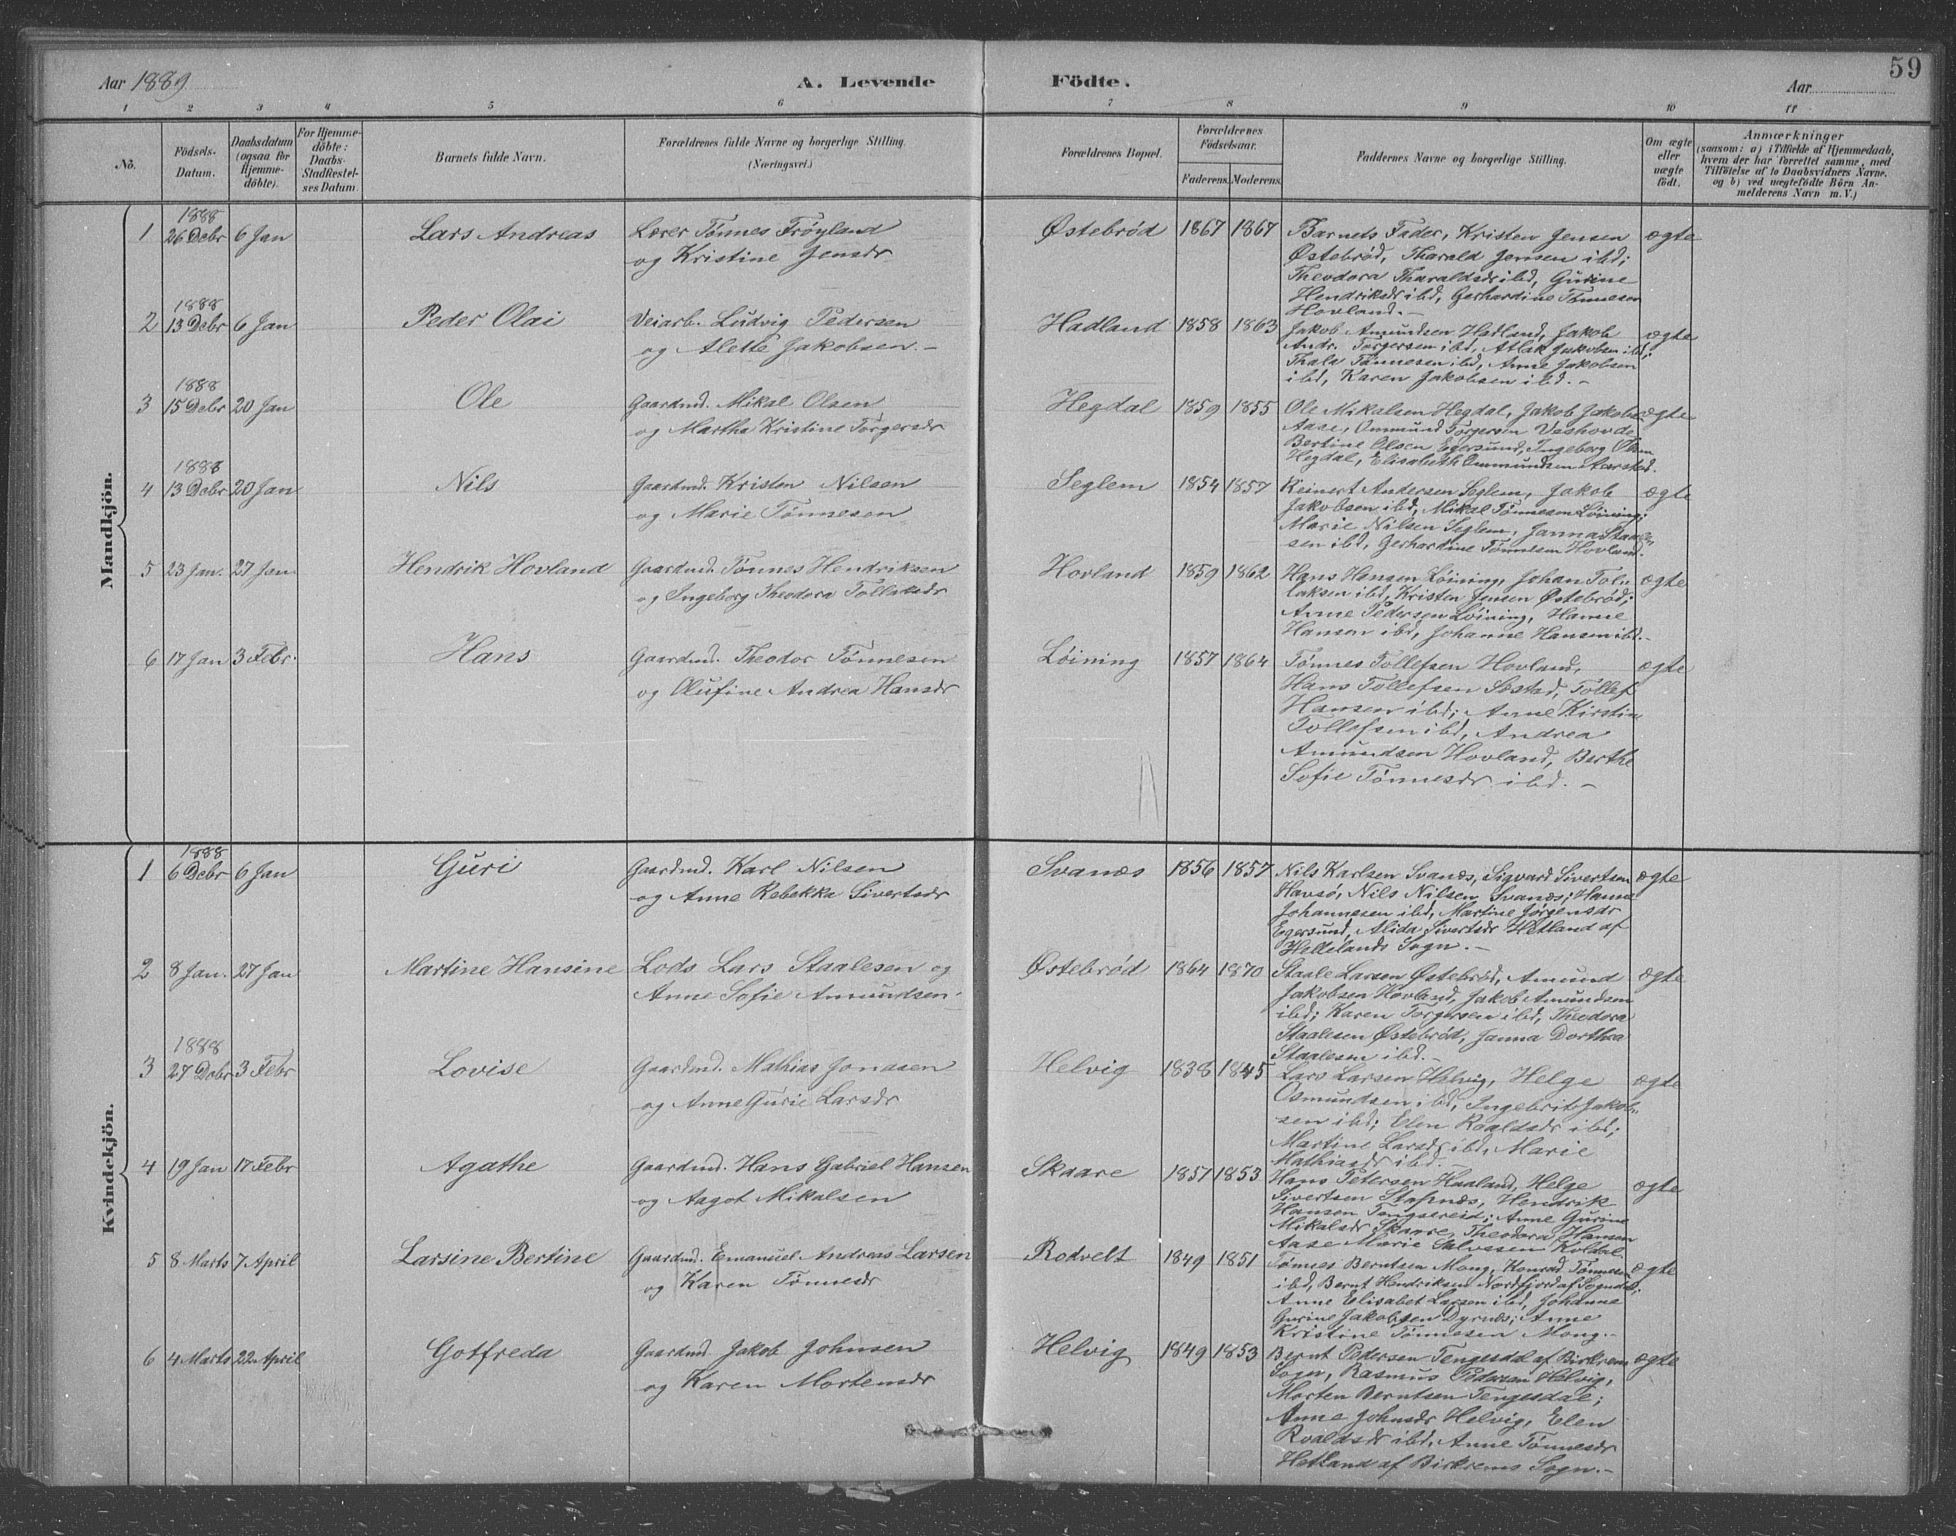 59
Aar 1889
A. Levende Födte.
Aar
1 2 3 4 5 6 7 8 9 10 11
No.
Födsels-Datum.
Daabsdatum (ogsaa for Hjemmedöbte).
For Hjemmedöbte: Daabs-Stadfæstelses Datum.
Barnets fulde Navn.
Forældrenes fulde Navne og borgerlige Stilling. (Næringsvei.)
Forældrenes Bopæl.
Forældrenes Födselsaar.
Faderens. Moderens.
Faddernes Navne og borgerlige Stilling.
Om ægte eller uægte födt.
Anmærkninger
(saasom: a) i Tilfælde af Hjemmedaab,
hvem der har forrettet samme, med
Tilföielse af to Daabsvidners Navne.
og b) ved uægtefödte Börn An-
melderens Navn m. V.)
Mandkjön.
1 1888 26 Debr 6 Jan Lars Andreas Lærer Tönnes Fröyland og Kristine Jensdr Østebrød 1867 1867 ægte
Barnets Fader, Kristen Jensen
Østebrød, Tharald Jensen ibd;
Theodora Tharaldsdr ibd, Gurine
Hendriksdr ibd, Gerhardine Tønnesen
Hovland. -
2 1888 13 Debr 6 Jan Peder Olai Veiarb. Ludvig Pedersen og Alette Jakobsen - Hadland 1858 1863 ægte
Jakob Amundsen Hadland, Jakob
Andr. Torgersen ibd, Atlak Jakobsen ibd;
Thala Tønnesen ibd, Anne Jakobsen
ibd, Karen Jakobsen ibd. -
3 1888 15 Debr 20 Jan Ole Gaardmd. Mikal Olsen og Martha Kristine Torgersdr Hegdal 1859 1855 ægte
Ole Mikalsen Hegdal, Jakob Jakobs.
Aase, Ommund Torgersen Veshovde
Bertine Olsen Egersund, Ingeborg Olsen
Hegdal, Elisabeth Ommundsen Aarstad.
4 1888 13 Debr 20 Jan Nils Gaardmd. Kristen Nilsen og Marie Tönnesen Seglem 1854 1857 ægte
Reinert Andersen Seglem, Jakob
Jakobsen ibd, Mikal Tönnesen Løining;
Marie Nilsen Seglem, Janna Staale-
sen ibd, Gerhardine Tönnesen Hovland.
5 23 Jan. 27 Jan Hendrik Hovland Gaardmd. Tönnes Hendriksen og Ingeborg Theodora Tollaksdr Hovland 1859 1862 ægte
Hans Hansen Løining, Johan Tol-
laksen ibd, Kristen Jensen Østebrød;
Anne Pedersen Løining, Hanne
Hansen ibd, Johanne Hansen ibd. -
6 17 Jan 3 Febr. Hans Gaardmd. Theodor Tönnesen og Olufine Andrea Hansdr Løining 1857 1864 ægte
Tønnes Tollefsen Hovland,
Hans Tollefsen Sæstad, Tollef
Hansen ibd; Anne Kirstin
Tollefsen ibd, Andrea
Amundsen Hovland, Berthe
Sofie Tönnesdr ibd. -
Kvindekjön.
1 1888 6 Debr 6 Jan Guri Gaardmd. Karl Nilsen og Anne Rebekka Sivertsdr Svanæs 1856 1857 ægte
Nils Karlsen Svanæs, Sigvard Sivertsen
Havsø, Nils Nilsen Svanæs; Hanne
Johannesen ibd, Martine Jørgensdr
Egersund, Alida Sivertsdr Hetland af
Hellelands Sogn. -
2 8 Jan. 27 Jan Martine Hansine Lods Lars Staalesen og Anne Sofie Amundsen. Østebrød 1864 1870 ægte
Staale Larsen Østebrød, Amund
Jakobsen Hovland, Jakob Amundsen
ibd; Karen Torgersen ibd, Theodora
Staalesen Østebrød, Janna Dorthea
Staalesen ibd. -
3 1888 27 Debr 3 Febr Lovise Gaardmd. Mathias Jonasen og Anne Gurie Larsdr Helvig 1838 1845 ægte
Lars Larsen Helvig, Helge
Osmundsen ibd, Ingebrit Jakob-
sen ibd; Elen Roaldsdr ibd;
Martine Larsdr ibd, Marie
Mathiasdr ibd.
4 19 Jan 17 Febr Agathe Gaardmd. Hans Gabriel Hansen og Aagot Mikalsen Skaare 1857 1853 ægte
Hans Petersen Haaland, Helge
Sivertsen Stapnæs, Hendrik
Hansen Tengsereid; Anne Gurine
Mikalsdr Skaare, Theodora Hansen
Aase Marie Salvesen Koldal
5 8 Marts 7 April Larsine Bertine Gaardmd. Emanuel Andreas Larsen og Karen Tönnesdr Rodvelt 1849 1851 ægte
Tønnes Berntsen Mong, Konrad Tönnesen
ibd, Bernt Hendriksen Nordfjord af Sogndal;
Anne Elisabet Larsen ibd, Johanne
Gurine Jakobsen Dyrnæs; Anne
Kristine Tønnesen Mong. -
6 4 Marts 22 April Gotfreda Gaardmd. Jakob Johnsen og Karen Mortensdr Helvig 1849 1853 ægte
Bernt Pedersen Tengesdal af Birkrem
Sogn, Rasmus Pedersen Helvig,
Morten Berntsen Tengesdal;
Anne Johnsdr Helvig, Elen
Roaldsdr ibd, Anne Tönnesdr
Hetland af Birkrems Sogn. -